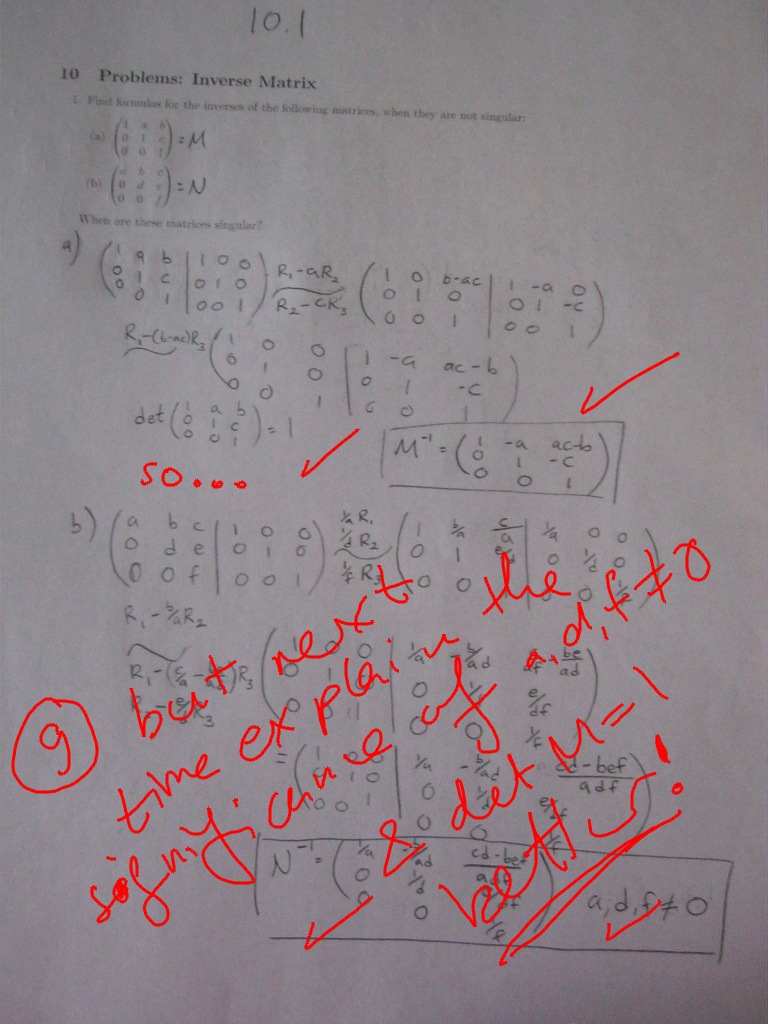 10.1
10 Problems: Inverse Matrix
1. Find formulas for the inverses of the following matrices, when they are not singular:
(a) ( 1 a b
0 1 c
0 0 1 ) = M
(b) ( a b c
0 d e
0 0 f ) = N
When are these matrices singular?
a) ( 1 a b | 1 0 0
0 1 c | 0 1 0
0 0 1 | 0 0 1 ) R₁-aR₂ R₂-cR₃ ( 1 0 b-ac | 1 -a 0
0 1 0 | 0 1 -c
0 0 1 | 0 0 1 )
R₁-(b-ac)R₃ ( 1 0 0 | 1 -a ac-b
0 1 0 | 0 1 -c
0 0 1 | 0 0 1 )
det ( 1 a b
0 1 c
0 0 1 ) = 1
M⁻¹ = ( 1 -a ac-b
0 1 -c
0 0 1 )
so...
b) ( a b c | 1 0 0
0 d e | 0 1 0
0 0 f | 0 0 1 ) 1/a R₁ 1/d R₂ 1/f R₃ ( 1 b/a c/a | 1/a 0 0
0 1 | 0 1/d 0
0 0
R₁-b/aR₂
R₃
1/a
0 e/df
0 0 1/f
= 1/a -b/ad cd-bef/adf
0
0 0
N⁻¹ = ( 1/a cd-bef
0 1/d
0 0 ) a,d,f≠0
9
but next
time explain the
significance of a,d,f≠0
& det M=1
better!